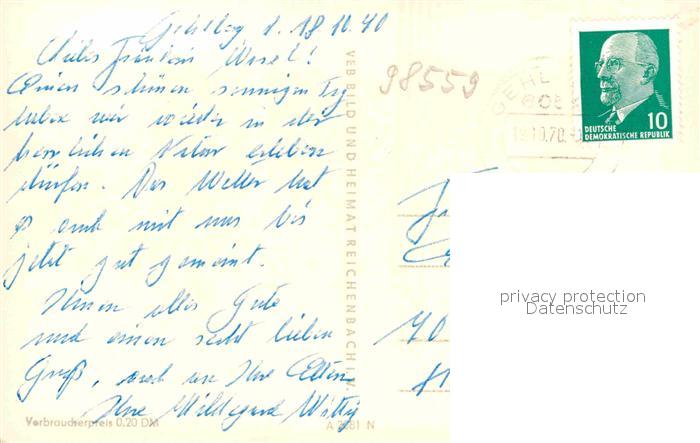 Gehlberg d. 18.10.70
Liebes Fräulein Wesel!
Einen schönen sonnigen Tag
haben wir wieder in der
herrlichen Natur erleben
dürfen. Das Wetter hat
es auch mit uns bis
jetzt gut gemeint.
Ihnen alles Gute
und einen recht lieben
Gruß, auch an Ihre Eltern
Ihre Hildegard
Verbraucherpreis 0.20 DM
VEB BILD UND HEIMAT REICHENBACH I. V.
A 2081 N
98559
GEHL
.10.70
10
DEUTSCHE
DEMOKRATISCHE REPUBLIK
70
privacy protection
Datenschutz